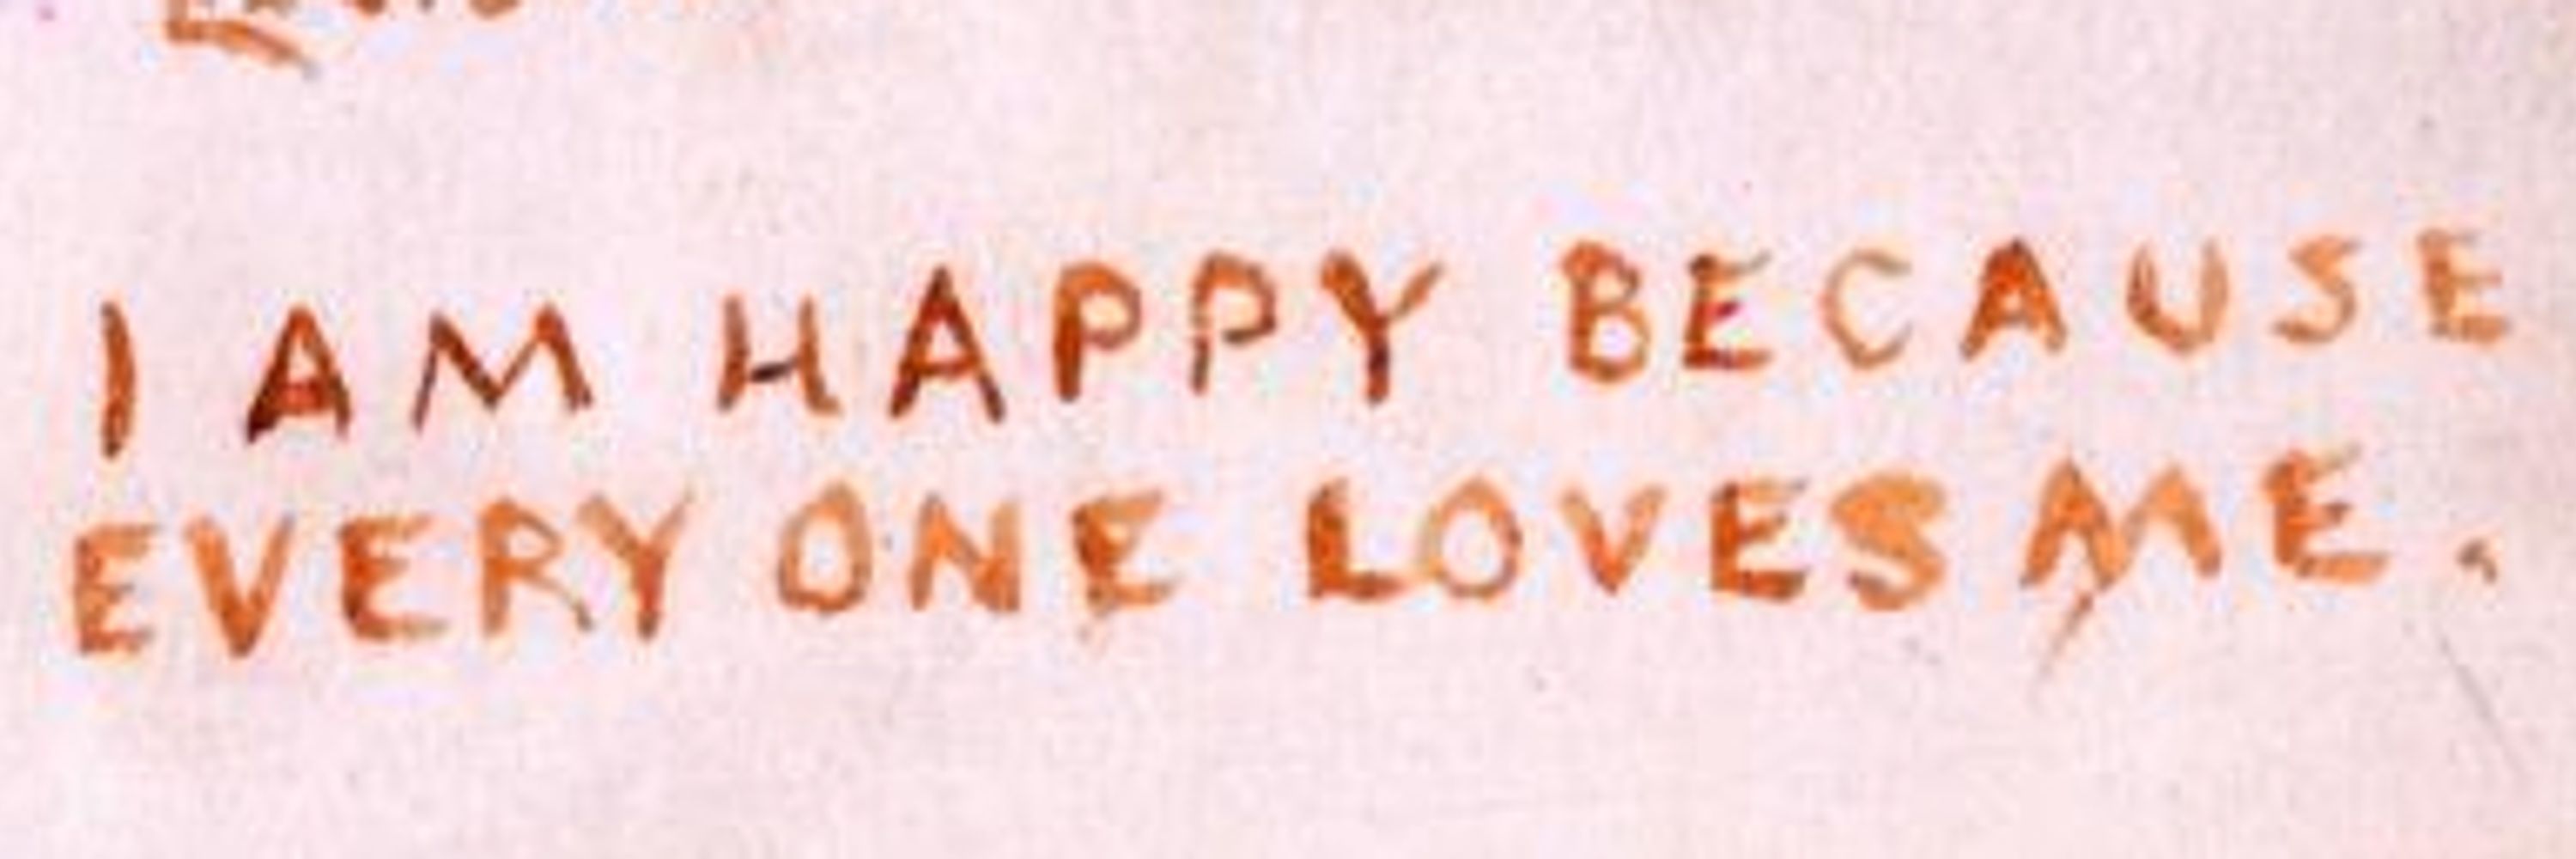 I AM HAPPY BECAUSE
EVERY ONE LOVES ME.